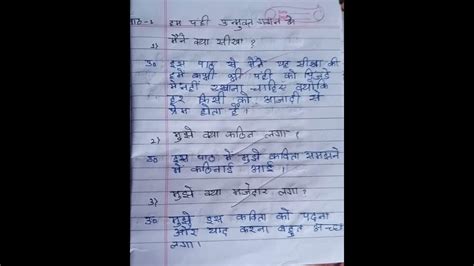 पाठ-1 हम पंछी उन्मुक्त गगन के
1) मैंने क्या सीखा?
उ० इस पाठ से मैंने यह सीखा की
हमे कभी भी पंछी को पिंजरे
मे नहीं रखना चाहिए क्योंकि
हर किसी को आजादी से
प्रेम होता है।
2) मुझे क्या कठिन लगा?
उ० इस पाठ में मुझे कविता समझने
में कठिनाई आई।
3) मुझे क्या मजेदार लगा?
उ० मुझे इस कविता को पढ़ना
और याद करना बहुत अच्छा
लगा।